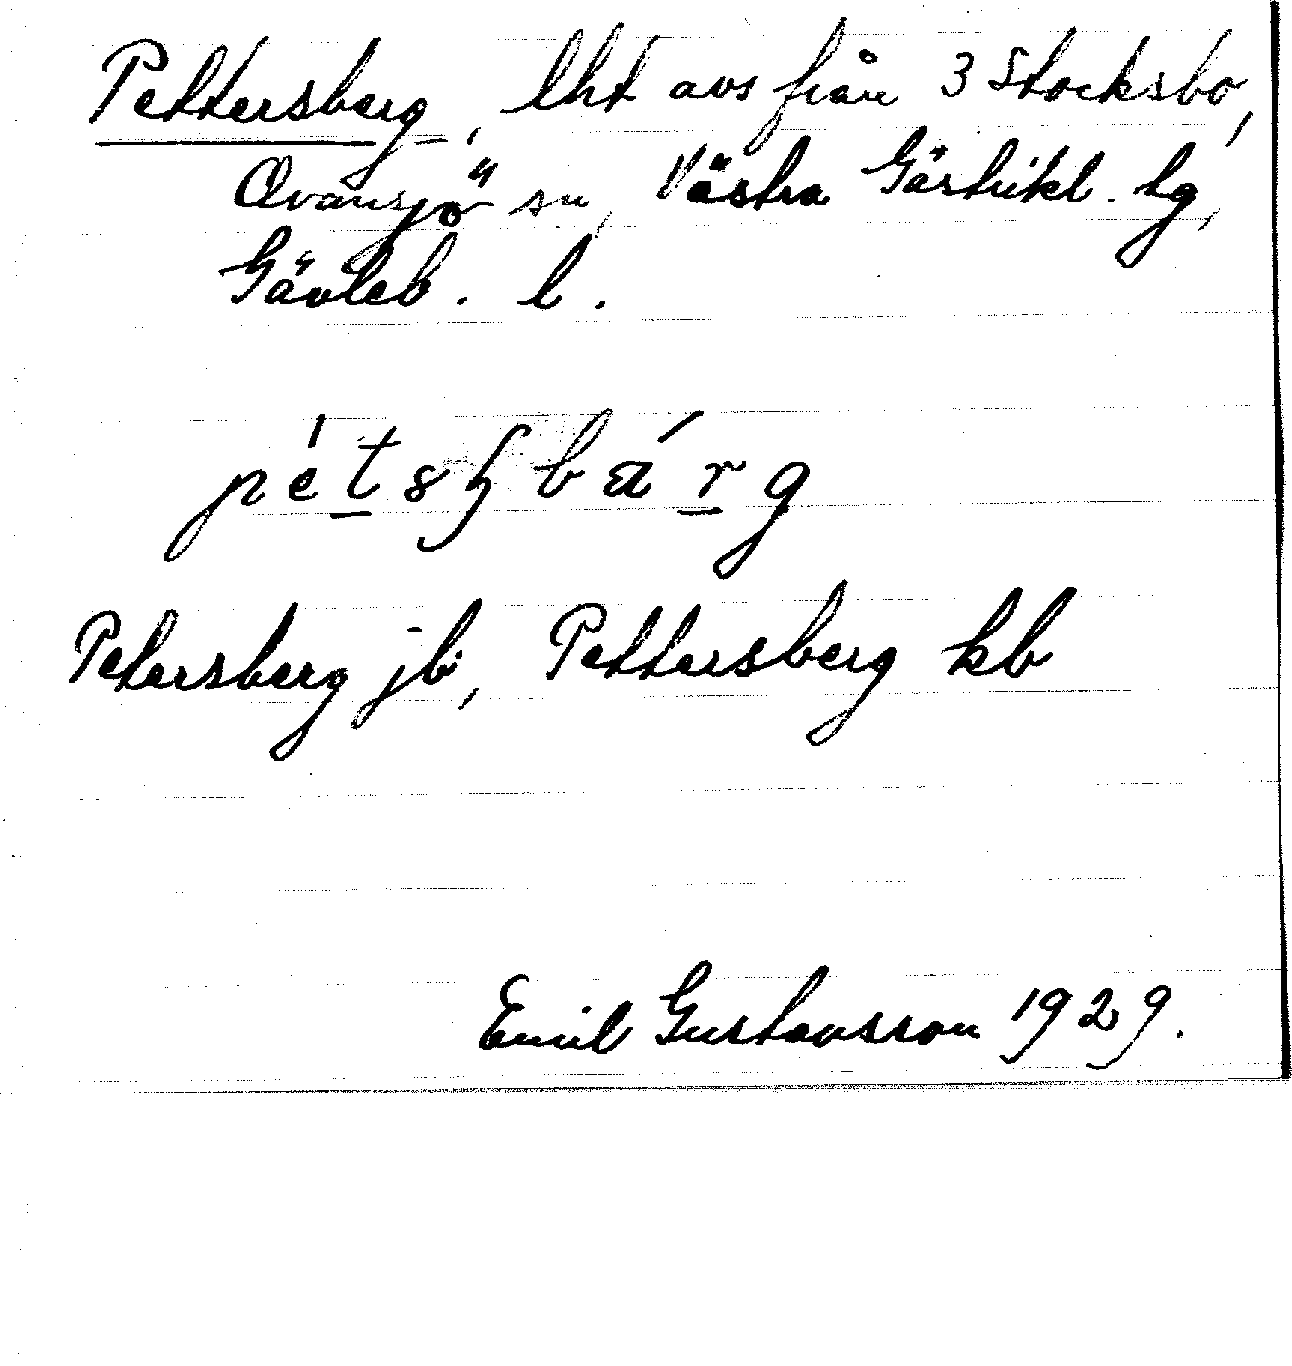 Pettersberg, lht avs från 3 Stocksbo,
Ovansjö sn, Västra Gästrikl. tg,
Gävleb. l.
Petersberg jb, Pettersberg kb
Emil Gustavsson 1929.